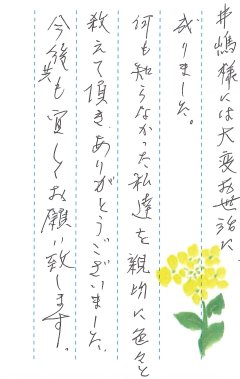 井嶋様には大変お世話に
成りました。
何も知らなかった私達を親切に色々と
教えて頂きありがとうございました。
今後共も宜しくお願い致します。